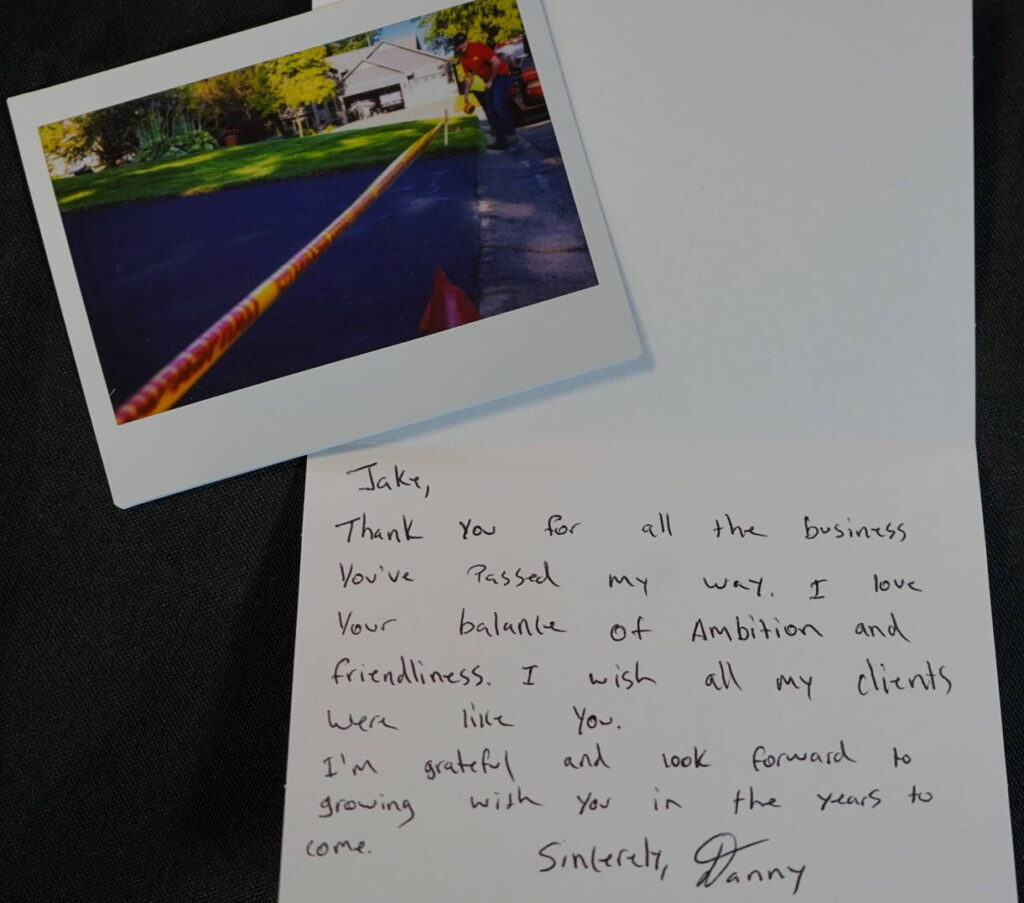 Jake,
Thank you for all the business
you've passed my way. I love
your balance of Ambition and
friendliness. I wish all my clients
were like you.
I'm grateful and look forward to
growing with you in the years to
come.
Sincerely, Danny